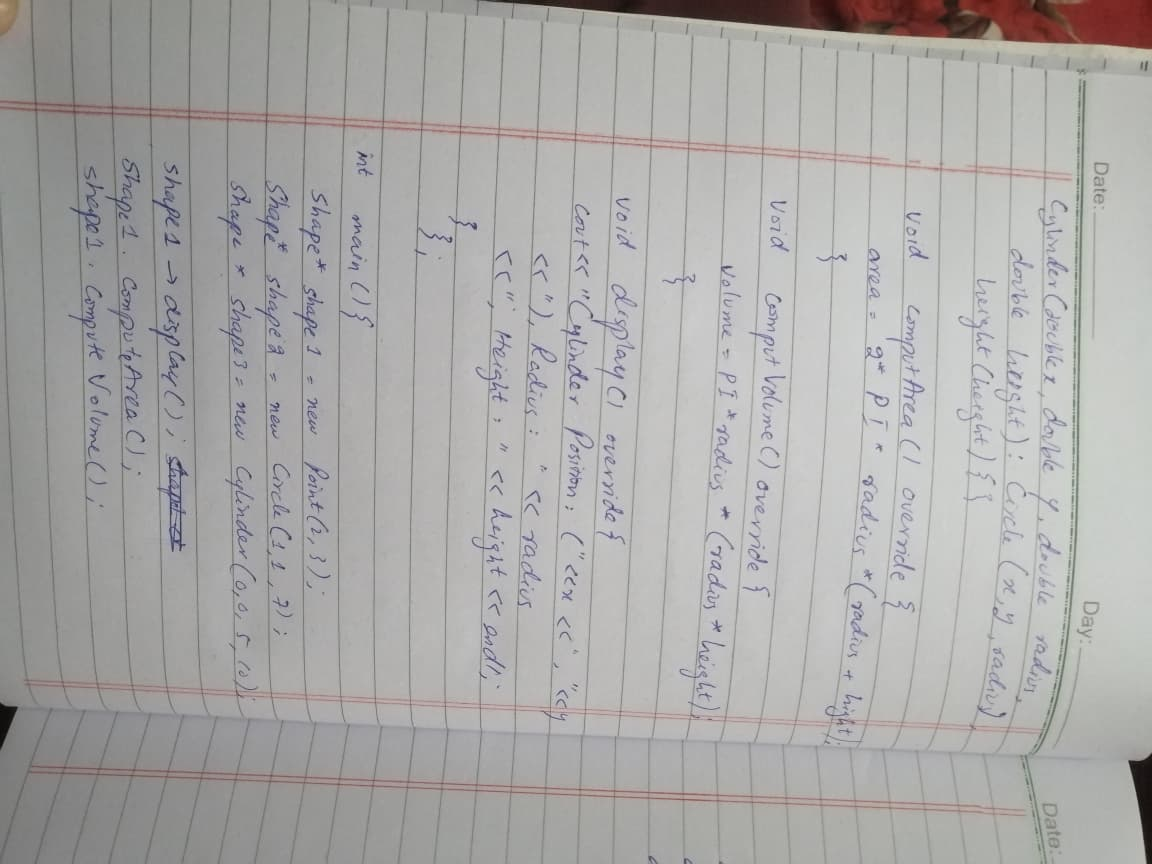 Date:
Day:
Cylinder(double x, double y, double radius,
double hieght) : Circle (x, y, radius),
height(height) { }
void computArea() override {
area = 2 * PI * radius * (radius + hight);
}
void computVolume() override {
volume = PI * radius * (radius * height);
}
void display() override {
cout << "Cylinder Position: (" << x << ", " << y
<< "), Radius: " << radius
<< ", Height: " << height << endl;
}
};
int main() {
Shape* shape1 = new Point(2, 3);
Shape* shape2 = new Circle(1, 1, 7);
Shape* shape3 = new Cylinder(0, 0, 5, 10);
shape1 → display();
Shape1. ComputeArea();
shape1. Compute Volume();
Date: